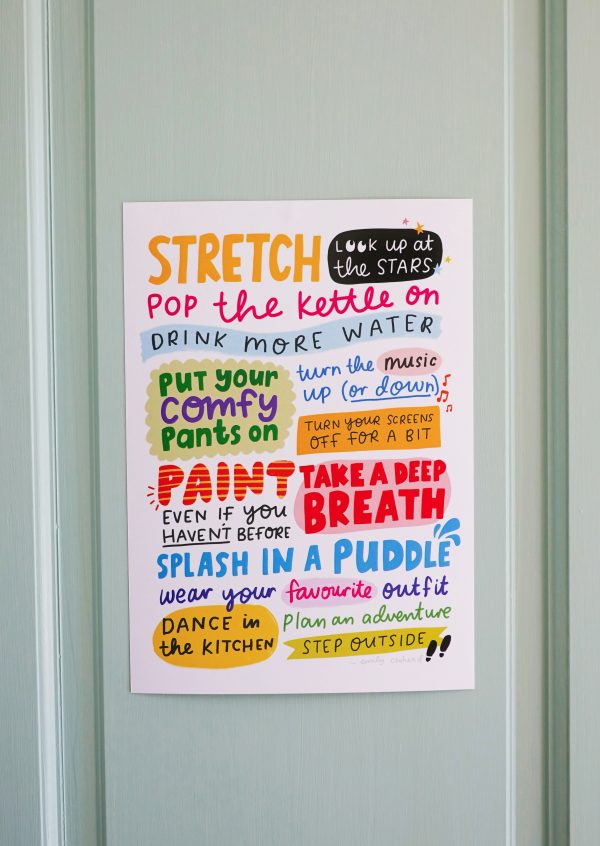 STRETCH
LOOK up at
the STARS
POP the kettle on
DRINK MORE WATER
PUT your
comfy
pants on
turn the music
up (or down)
TURN YOUR SCREENS
OFF FOR A BIT
PAINT
EVEN IF you
HAVEN'T BEFORE
TAKE A DEEP
BREATH
SPLASH IN A PUDDLE
wear your favourite outfit
DANCE in
the KITCHEN
plan an adventure
STEP OUTSIDE!!